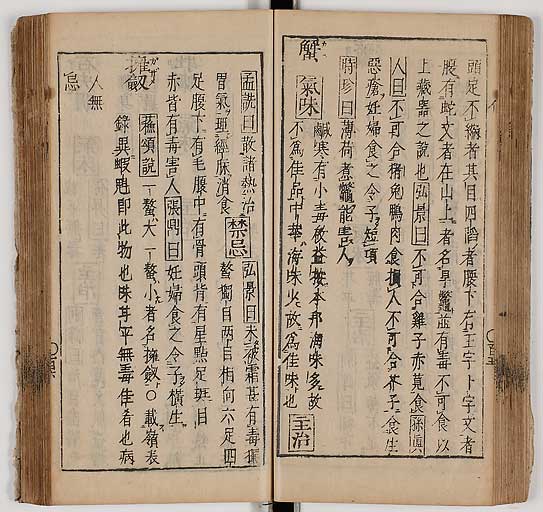 頭足不縮者其目四陷者腹下有王字卜字文者
腹有蛇文者在山上者名旱鼈並有毒不可食以
上藏器之說也弘景曰不可合雞子莧食孫眞
人曰不可合猪兔鴨肉食損人不可合芥子食生
惡瘡妊婦食之令子短項
時珍曰薄荷煮鼈能害人
蟹
氣味 鹹寒有小毒 本邦海味多故
不爲佳品中華海味少故爲佳味也 主治
孟詵曰散諸熱治
胃氣理經脉消食 禁忌 弘景曰未被霜甚有毒
獨目兩目相向六足四
足腹下有毛腹中有骨頭背有星點足斑目
赤皆有毒害人張鼎曰妊婦食之令子橫生
擁劔
蘇頌說一螯大一螯小者名擁劔○載嶺表
錄異蝦魁即此物也味平無毒佳肴也病
人無
忌